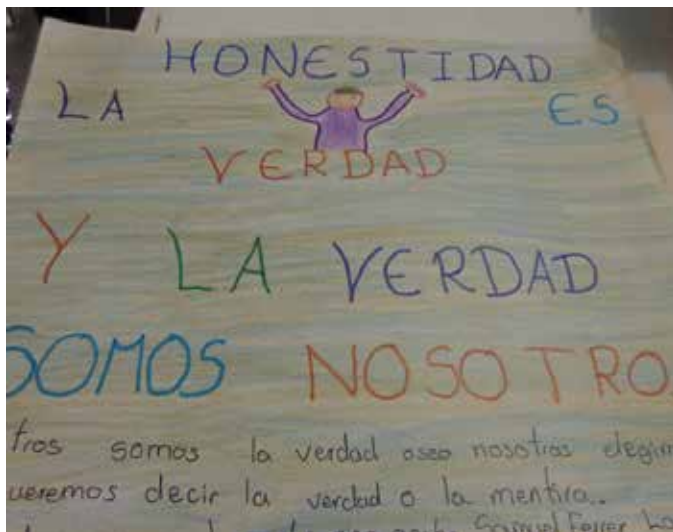 HONESTIDAD
LA ES
VERDAD
Y LA VERDAD
SOMOS NOSOTRO
tros somos la verdad osea nosotros elegim
ueremos decir la verdad o la mentira..
Samuel Ferrer